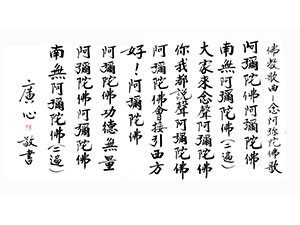 佛教歌曲－念阿弥陀佛歌
阿彌陀佛阿彌陀佛
南無阿彌陀佛(三遍)
大家來念聲阿彌陀佛
你我都說聲阿彌陀佛
阿彌陀佛會接引西方
好！阿彌陀佛
阿彌陀佛功德無量
阿彌陀佛阿彌陀佛
南無阿彌陀佛(三遍)
廣心敬書